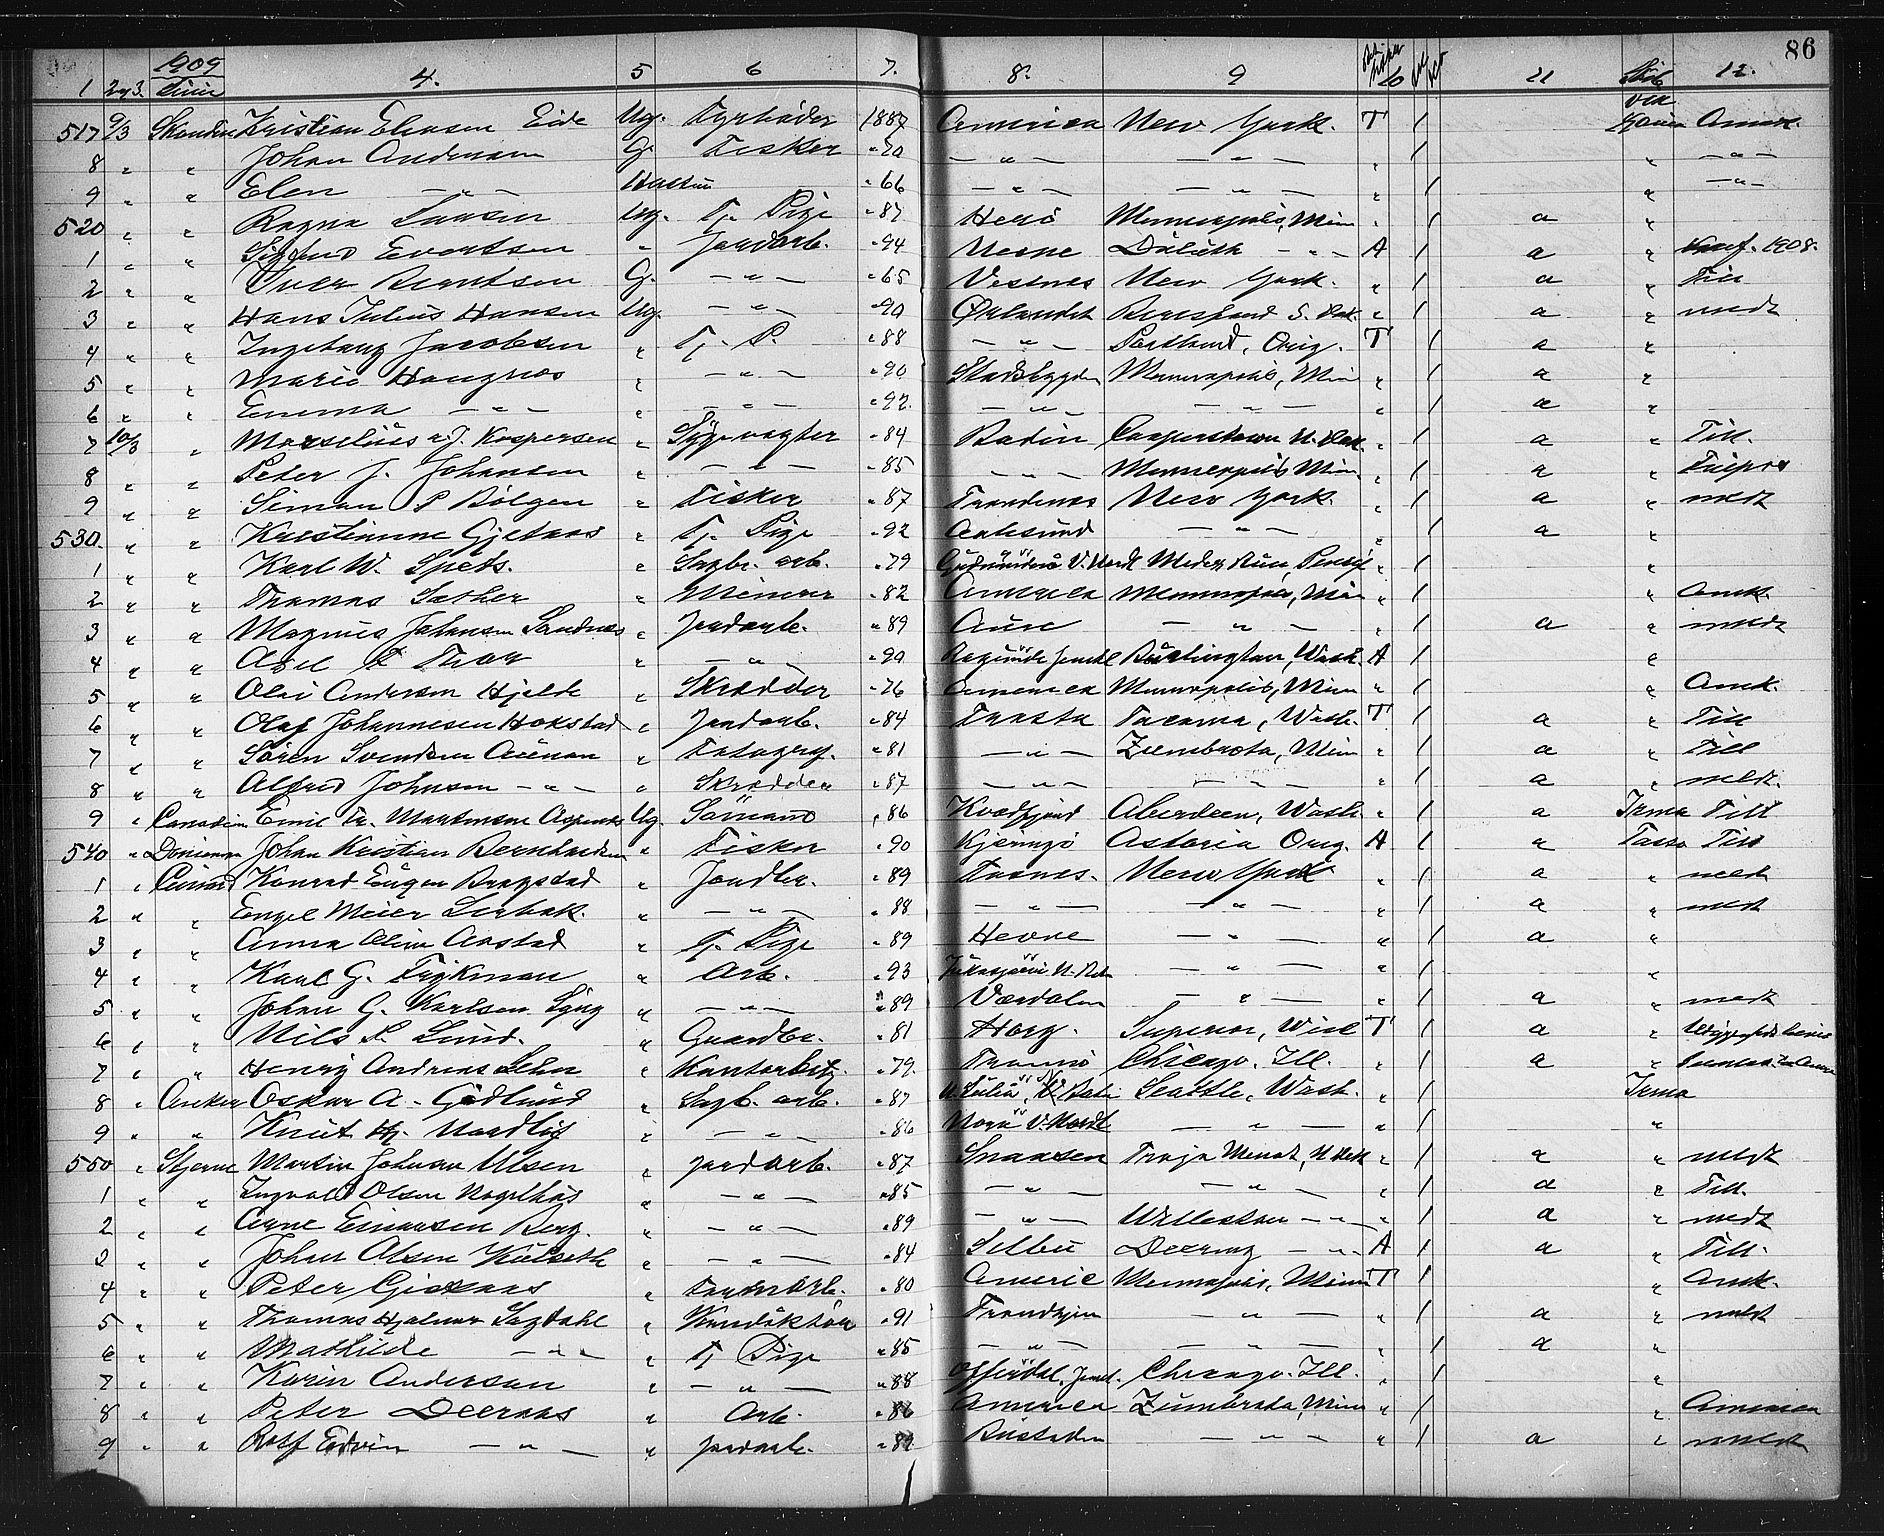 86
1909
1 2 og 3. Linie 4. 5 6 7. 8. 9 10 11 Skib 12.
517 9/3 Skandin Kristian Eliasen Eide Ug. Fyrbøder 1887 America New York. T / America
8 " " Johan Andersen G. Fisker " — " — — " — " / " — " —
9 " " Elen — " — Hustru " 66 — " — — " — " / " — " —
520 " " Ragna Larsen Ug. Tj. Pige " 87 Herö Minneapolis, Min " / a "
1 " " Sigfred Evertsen " Jordarb. " 94 Nesne Duluth — " — A / a " 1908.
2 " " Iver Berntsen G. — " — " 65 Vestnes New York. " / a " Till
3 " " Hans Julius Hansen Ug. — " — " 90 Ørlandet Beresford S. Dak. " / a " medt
4 " " Ingeborg Jacobsen " Tj. P. " 88 — " — Portland, Oreg. T / a "
5 " " Marie Haugnæs " — " — " 90 Stadsbygden Minneapolis, Min " / a "
6 " " Emma — " — " — " — " 92. — " — — " — " / a "
7 10/3 " Marselius A. J. Kaspersen " Sygevogter " 84 Bodin Cooperstown N. Dak. " / a " Till.
8 " " Peter J. Johansen " — " — " 85 — " — Minneapolis Min " / a "
9 " " Simon P Bölgen " Fisker " 87 Trondenes New York. " / a " medt
530. " " Kristianne Gjetnæs " Tj. Pige " 92 Aalesund — " — " / a "
1 " " Karl W. Speds. " Sagbr. arb. " 79 V. Nordl " / "
2 " " Thomas Sæther " Minerer " 82 America Minneapolis, Min " / " Amk.
3 " " Magnus Johansen Sandnæs " Jordarb. " 89 Aure — " — " / a " medt
4 " " Axel F. Thor " — " — " 90 Ragunda Jemtl Burlington, Wash. A / "
5 " " Olai Andersen Hjelde " Skrædder " 76 America Minneapolis, Minn " / " Amk.
6 " " Olaf Johannesen Hokstad " Jordarb. " 84 Frosta Tacoma, Wash. T / a " Till
7 " " Sören Svendsen Aunan " Fotograf. " 81 — " — Zumbrota, Min " / a " Till
8 " " Alfred Johnsen — " — " Skrædder " 87 — " — — " — " / a " medt.
9 " Canadian Emil Fr. Martinsen Ug. Sömand " 86 Kvædfjord Aberdeen, Wash. " / a Irma Till
540 " Dominion Johan Kristian Bernhardsen " Fisker " 90 Kjervijö Astoria Oreg. A / a Tasso Till
1 " Cunard Konrad Eugen Bragstad " Jordbr. " 89 Fosnes. New York " / a " medt
2 " " Engel Meier " — " — " 88 — " — — " — " / a " medt
3 " " Anna Oline Aastad " Tj. Pige " 89 Hevne — " — " / a "
4 " " Karl G. Frykman " Arb. " 93 — " — " / "
5 " " Johan G. Karlsen Lyng " — " — " 89 Værdalen — " — " / a " medt
6 " " Nils P. Lund. " Gaardbr. " 81 Horg. Superior, Wisc T / a "
7 " " Henry Andreas Lehn " Kontorbetj. " 79. Tromsö Chicago. Ill. " / a "
8 " Anker Oskar A. Gödlund " Sagb. arb. " 87 Seattle, Wash. " / Irma
9 " " Knut Hj. Nordlöf " — " — " 86 Nora V. Nordl — " — " / "
550 " Stjerne Martin Johnsen Ulsen " Jordarb. " 87 Snaasen N. Dak " / a " medt
1 " " Ingvald Olsen Nagelhus " — " — " 85 — " — — " — " / a " Till.
2 " " Arne Einarsen Berg. " — " — " 89 — " — Williston — " — " / a " medt
3 " " Johan Olsen Kulseth " — " — " 84 Selbu Deering — " — A / a " Till.
4 " " Peter Gisnaas " Farmarb. " 80 Americ Minneapolis, Minn T / " Amk.
5 " " Thomas Hjalmar Sagdahl " Konduktör " 91 Trondhjem — " — " / a " medt
6 " " Mathilde — " — " Tj Pige " 85 — " — — " — " / a "
7 " " Karin Andersson " — " — " 88 Offerdal, Jemtl. Chicago. Ill. " / "
8 " " Peter Deeraas " Arb. " 86 America Zumbrota, Minn " / " America
9 " " Rolf Edvin — " — " Jordarb. " 89 Bustaden — " — " / a " medt